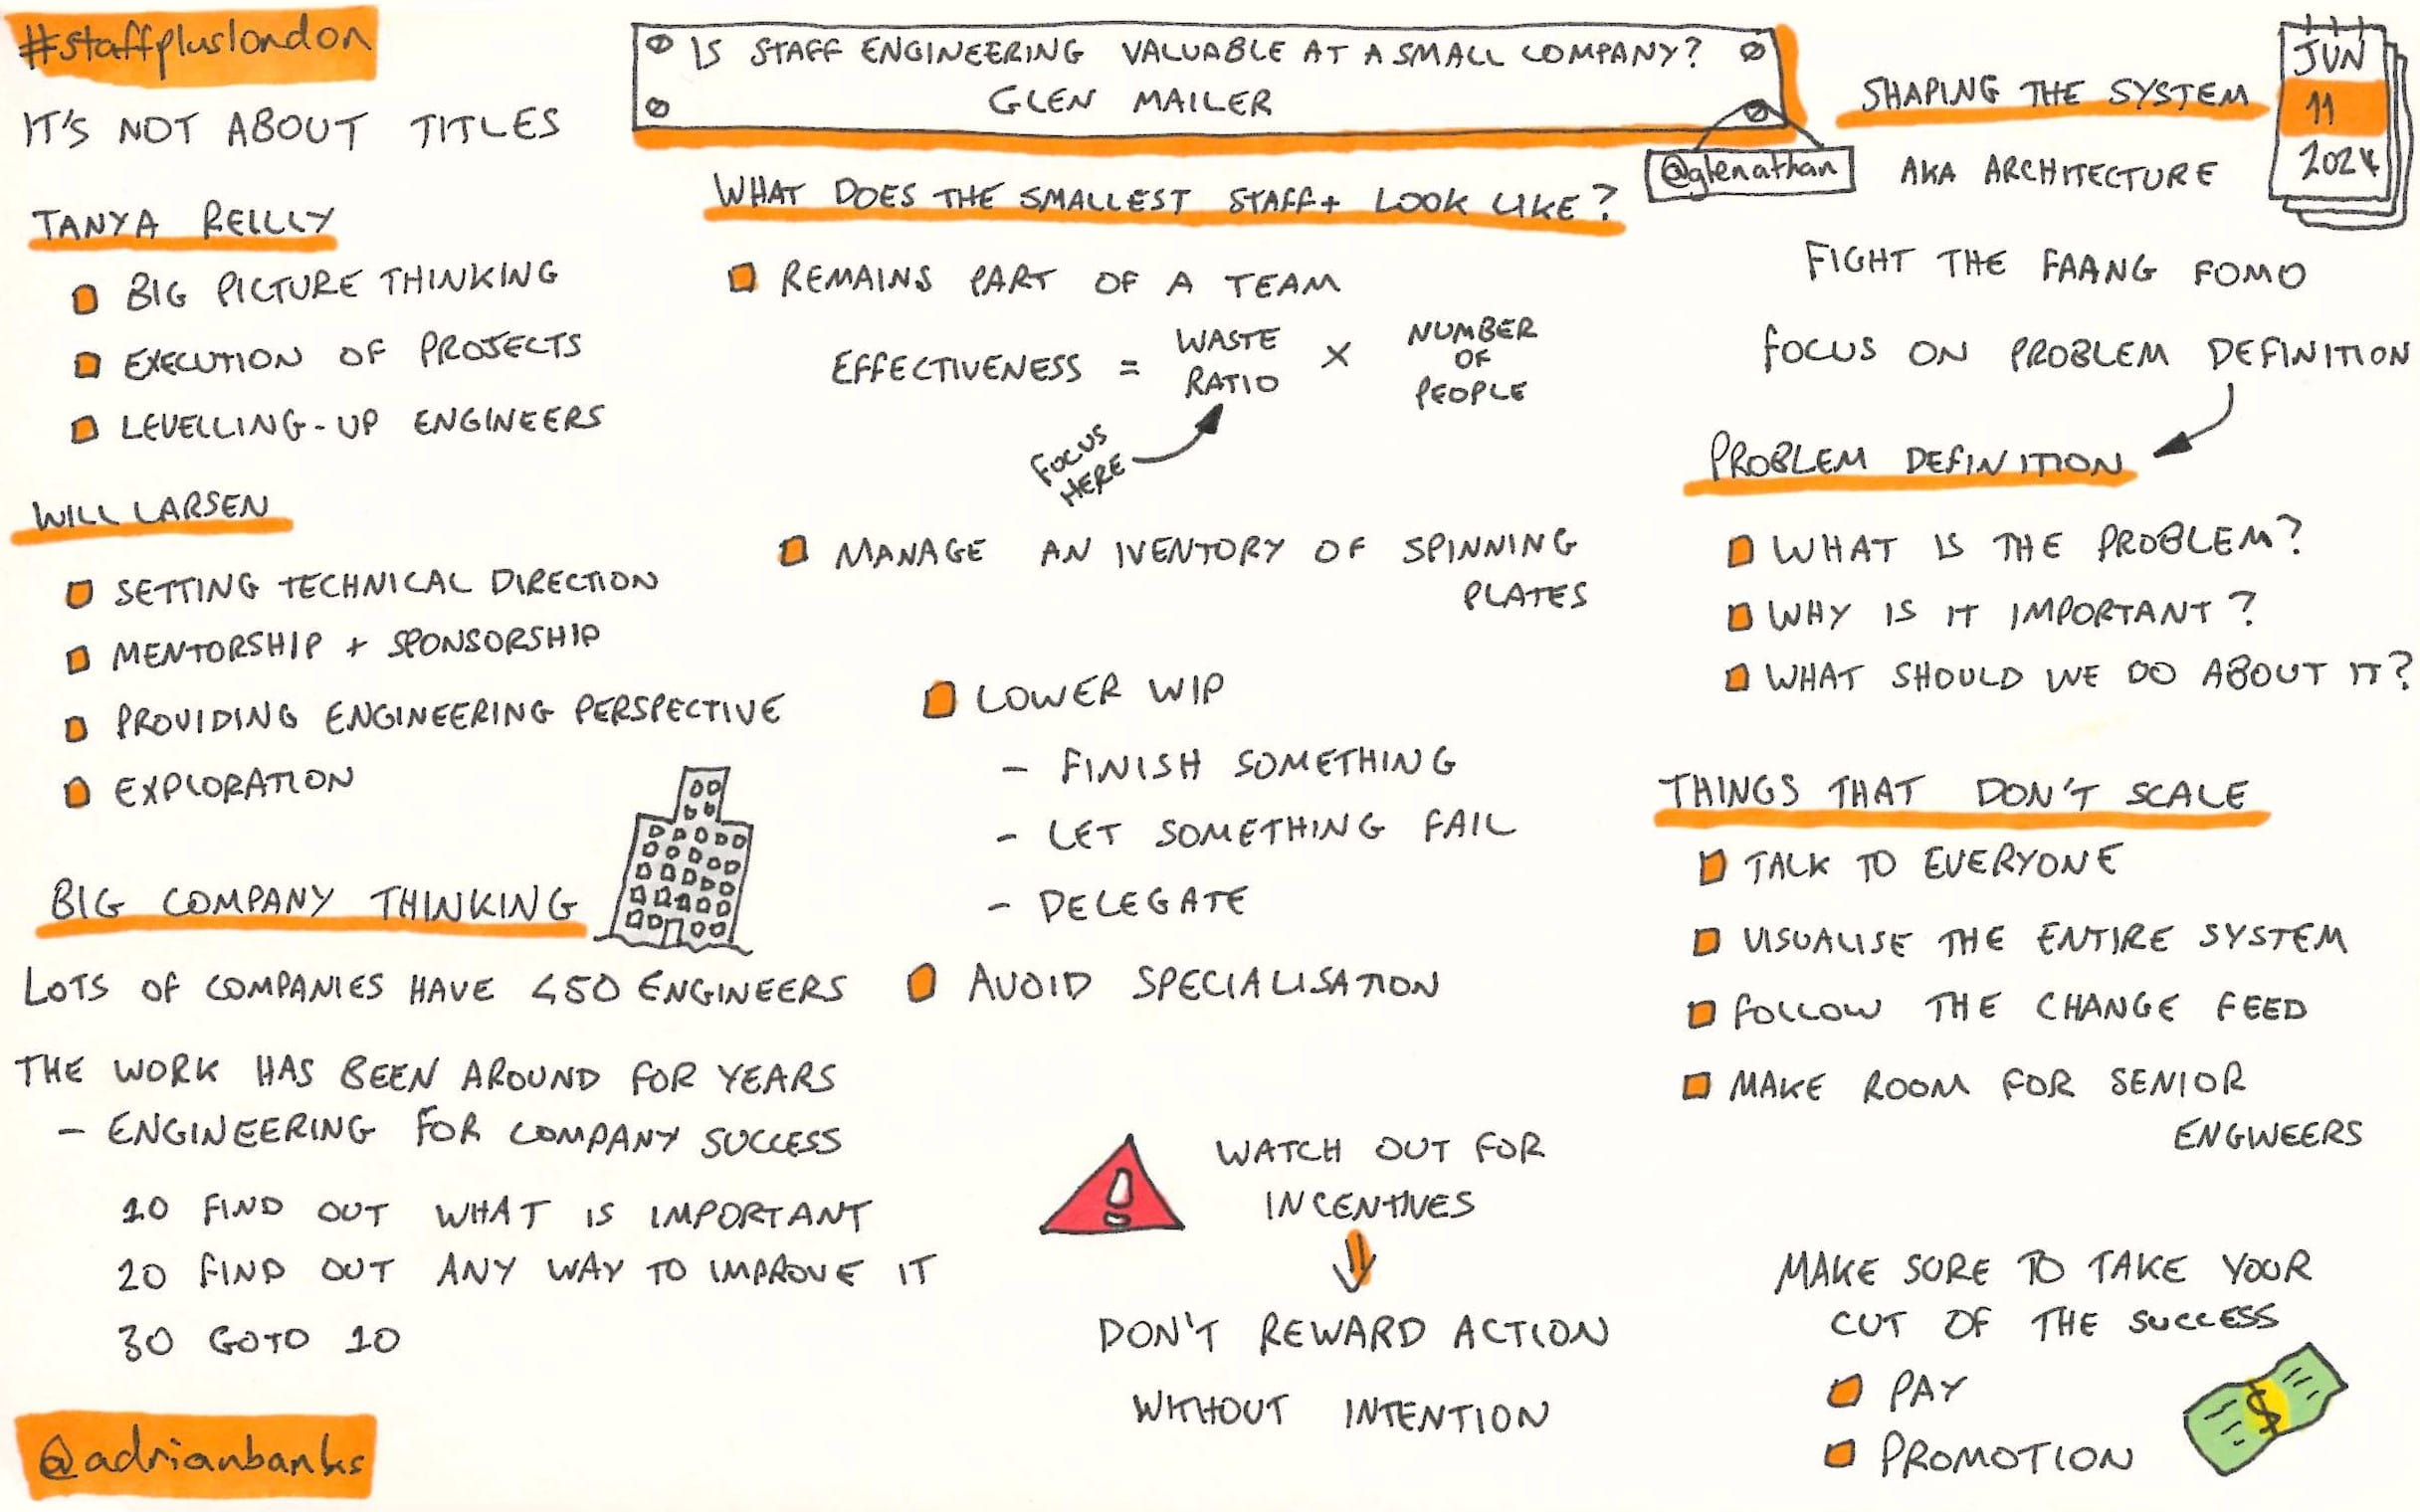 #staffpluslondon
IT'S NOT ABOUT TITLES
TANYA REILLY
BIG PICTURE THINKING
EXECUTION OF PROJECTS
LEVELLING-UP ENGINEERS
WILL LARSEN
SETTING TECHNICAL DIRECTION
MENTORSHIP + SPONSORSHIP
PROVIDING ENGINEERING PERSPECTIVE
EXPLORATION
BIG COMPANY THINKING
LOTS OF COMPANIES HAVE <50 ENGINEERS
THE WORK HAS BEEN AROUND FOR YEARS
- ENGINEERING FOR COMPANY SUCCESS
10 FIND OUT WHAT IS IMPORTANT
20 FIND OUT ANY WAY TO IMPROVE IT
30 GOTO 10
@adrianbanks
IS STAFF ENGINEERING VALUABLE AT A SMALL COMPANY?
GLEN MAILER
@glenathan
WHAT DOES THE SMALLEST STAFF+ LOOK LIKE?
REMAINS PART OF A TEAM
EFFECTIVENESS = WASTE RATIO × NUMBER OF PEOPLE
FOCUS
HERE
MANAGE AN IVENTORY OF SPINNING
PLATES
LOWER WIP
- FINISH SOMETHING
- LET SOMETHING FAIL
- DELEGATE
AVOID SPECIALISATION
WATCH OUT FOR
INCENTIVES
DON'T REWARD ACTION
WITHOUT INTENTION
JUN
11
2024
SHAPING THE SYSTEM
AKA ARCHITECTURE
FIGHT THE FAANG FOMO
FOCUS ON PROBLEM DEFINITION
PROBLEM DEFINITION
WHAT IS THE PROBLEM?
WHY IS IT IMPORTANT?
WHAT SHOULD WE DO ABOUT IT?
THINGS THAT DON'T SCALE
TALK TO EVERYONE
VISUALISE THE ENTIRE SYSTEM
FOLLOW THE CHANGE FEED
MAKE ROOM FOR SENIOR
ENGINEERS
MAKE SURE TO TAKE YOUR
CUT OF THE SUCCESS
PAY
PROMOTION
$